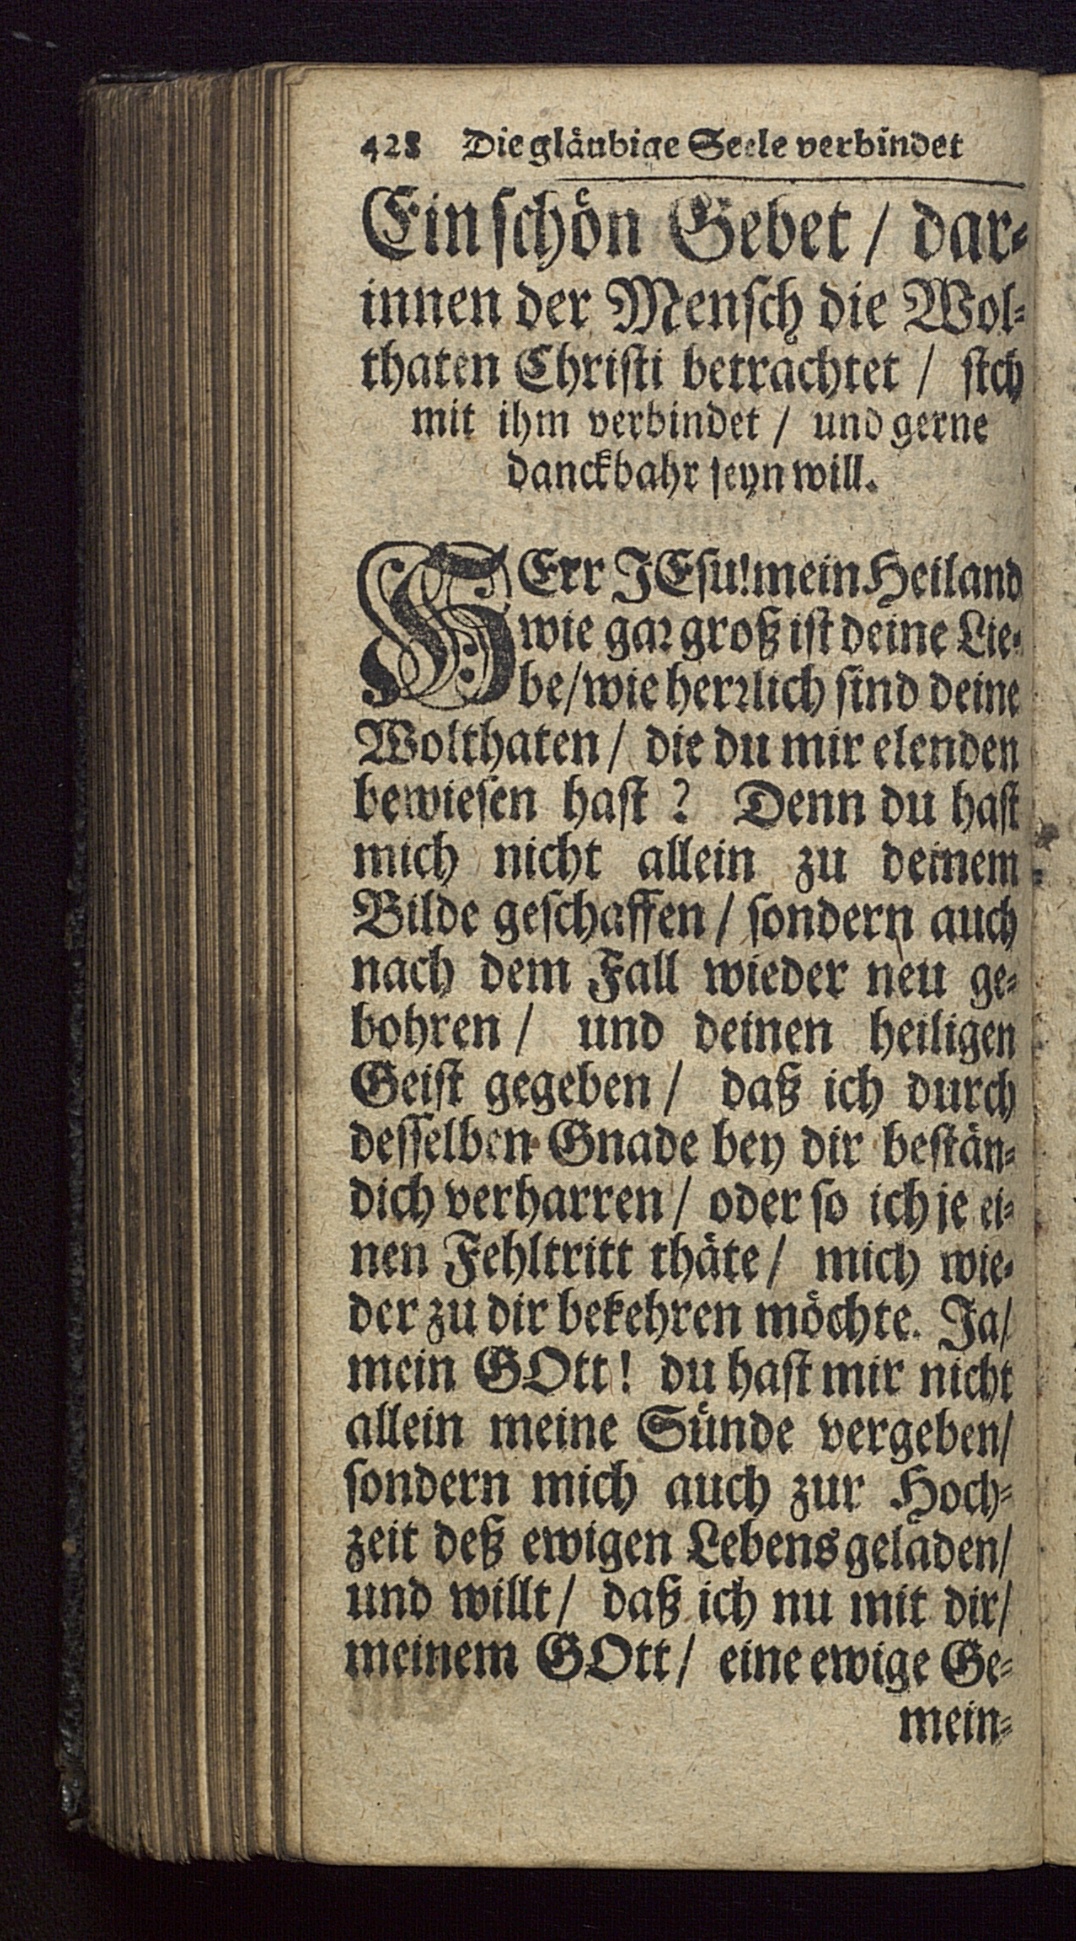 428 Die gläubige Seele verbindet
Ein schön Gebet / dar-
innen der Mensch die Wol-
thaten Christi betrachtet / sich
mit ihm verbindet / und gerne
danckbahr seyn will.
HErr JEsu! mein Heiland
wie gar groß ist deine Lie-
be/ wie herrlich sind deine
Wolthaten / die du mir elenden
bewiesen hast ? Denn du hast
mich nicht allein zu deinem
Bilde geschaffen / sondern auch
nach dem Fall wieder neu ge-
bohren / und deinen heiligen
Geist gegeben / daß ich durch
desselben Gnade bey dir bestän-
dich verharren / oder so ich je ei-
nen Fehltritt thäte / mich wie-
der zu dir bekehren möchte. Ja/
mein GOtt! du hast mir nicht
allein meine Sünde vergeben/
sondern mich auch zur Hoch-
zeit deß ewigen Lebens geladen/
und willt / daß ich nu mit dir/
meinem GOtt / eine ewige Ge-
mein-